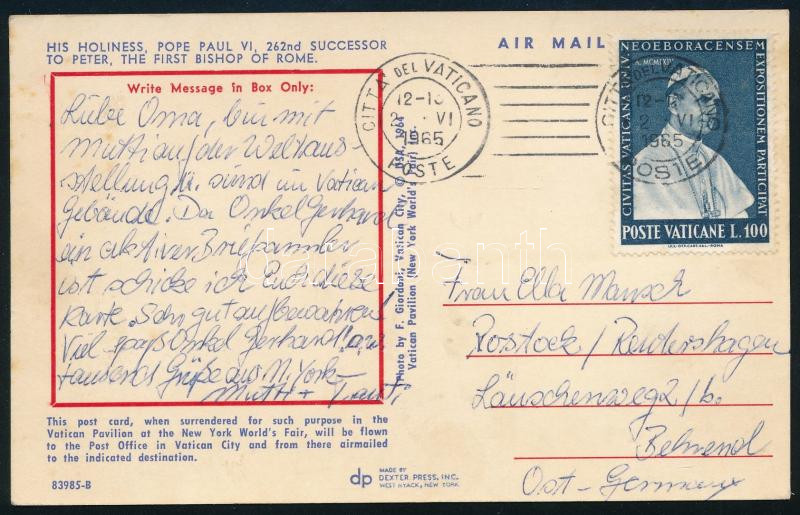 HIS HOLINESS, POPE PAUL VI, 262nd SUCCESSOR
TO PETER, THE FIRST BISHOP OF ROME.
AIR MAIL
Write Message in Box Only:
Liebe Oma, bin mit
Mutti auf der Weltaus-
stellung u. sind im Vatican
Gebäude. Da Onkel Gerhard
ein aktiver Briefsammler
ist schicke ich Euch diese
Karte. Sehr gut aufbewahren!
Viel Spaß Onkel Gerhard!
tausend Grüße aus N. York
This post card, when surrendered for such purpose in the
Vatican Pavilion at the New York World's Fair, will be flown
to the Post Office in Vatican City and from there airmailed
to the indicated destination.
83985-B
Photo by F. Giordani, Vatican City, © USA, 1964
Vatican Pavilion (New York World's Fair) Inc.
dp
MADE BY
DEXTER PRESS, INC.
WEST NYACK, NEW YORK
CITTÀ DEL VATICANO
VI
1965
POSTE
NEOEBORACENSEM
EXPOSITIONEM PARTICIPAT
CIVITAS VATICANA UNIV.
A. MCMLXIV
POSTE VATICANE L. 100
CITTÀ DEL VATICANO
VI
1965
POSTE
Frau Ella
Rostock/Reutershagen
2/b.
Ost-Germany
darabanth